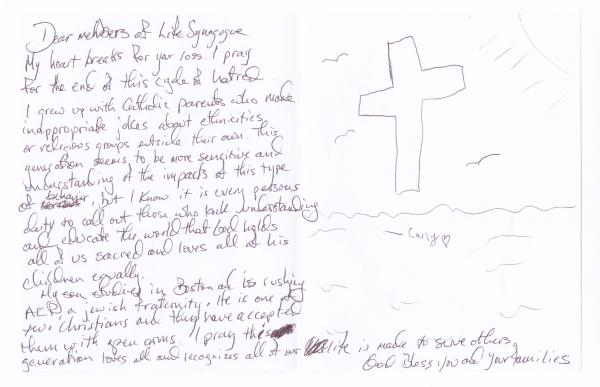 Dear members of Life Synagogue
My heart breaks for your loss. I pray
for the end of this cycle of hatred.
I grew up with Catholic parents who make
inappropriate jokes about ethnicities
or religious groups outside their own. This
generation seems to be more sensitive and
understanding of the impacts of this type
of behavior, but I know it is every persons
duty to call out those who lack understanding
and educate the world that God holds
all of us sacred and loves all of his
children equally.
My son studied in Boston and is rushing
AEPi a jewish fraternity. He is one of
two Christians and they have accepted
them with open arms. I pray this
generation loves all and recognizes all of our life is made to serve others.
God Bless you and your families
- Carly